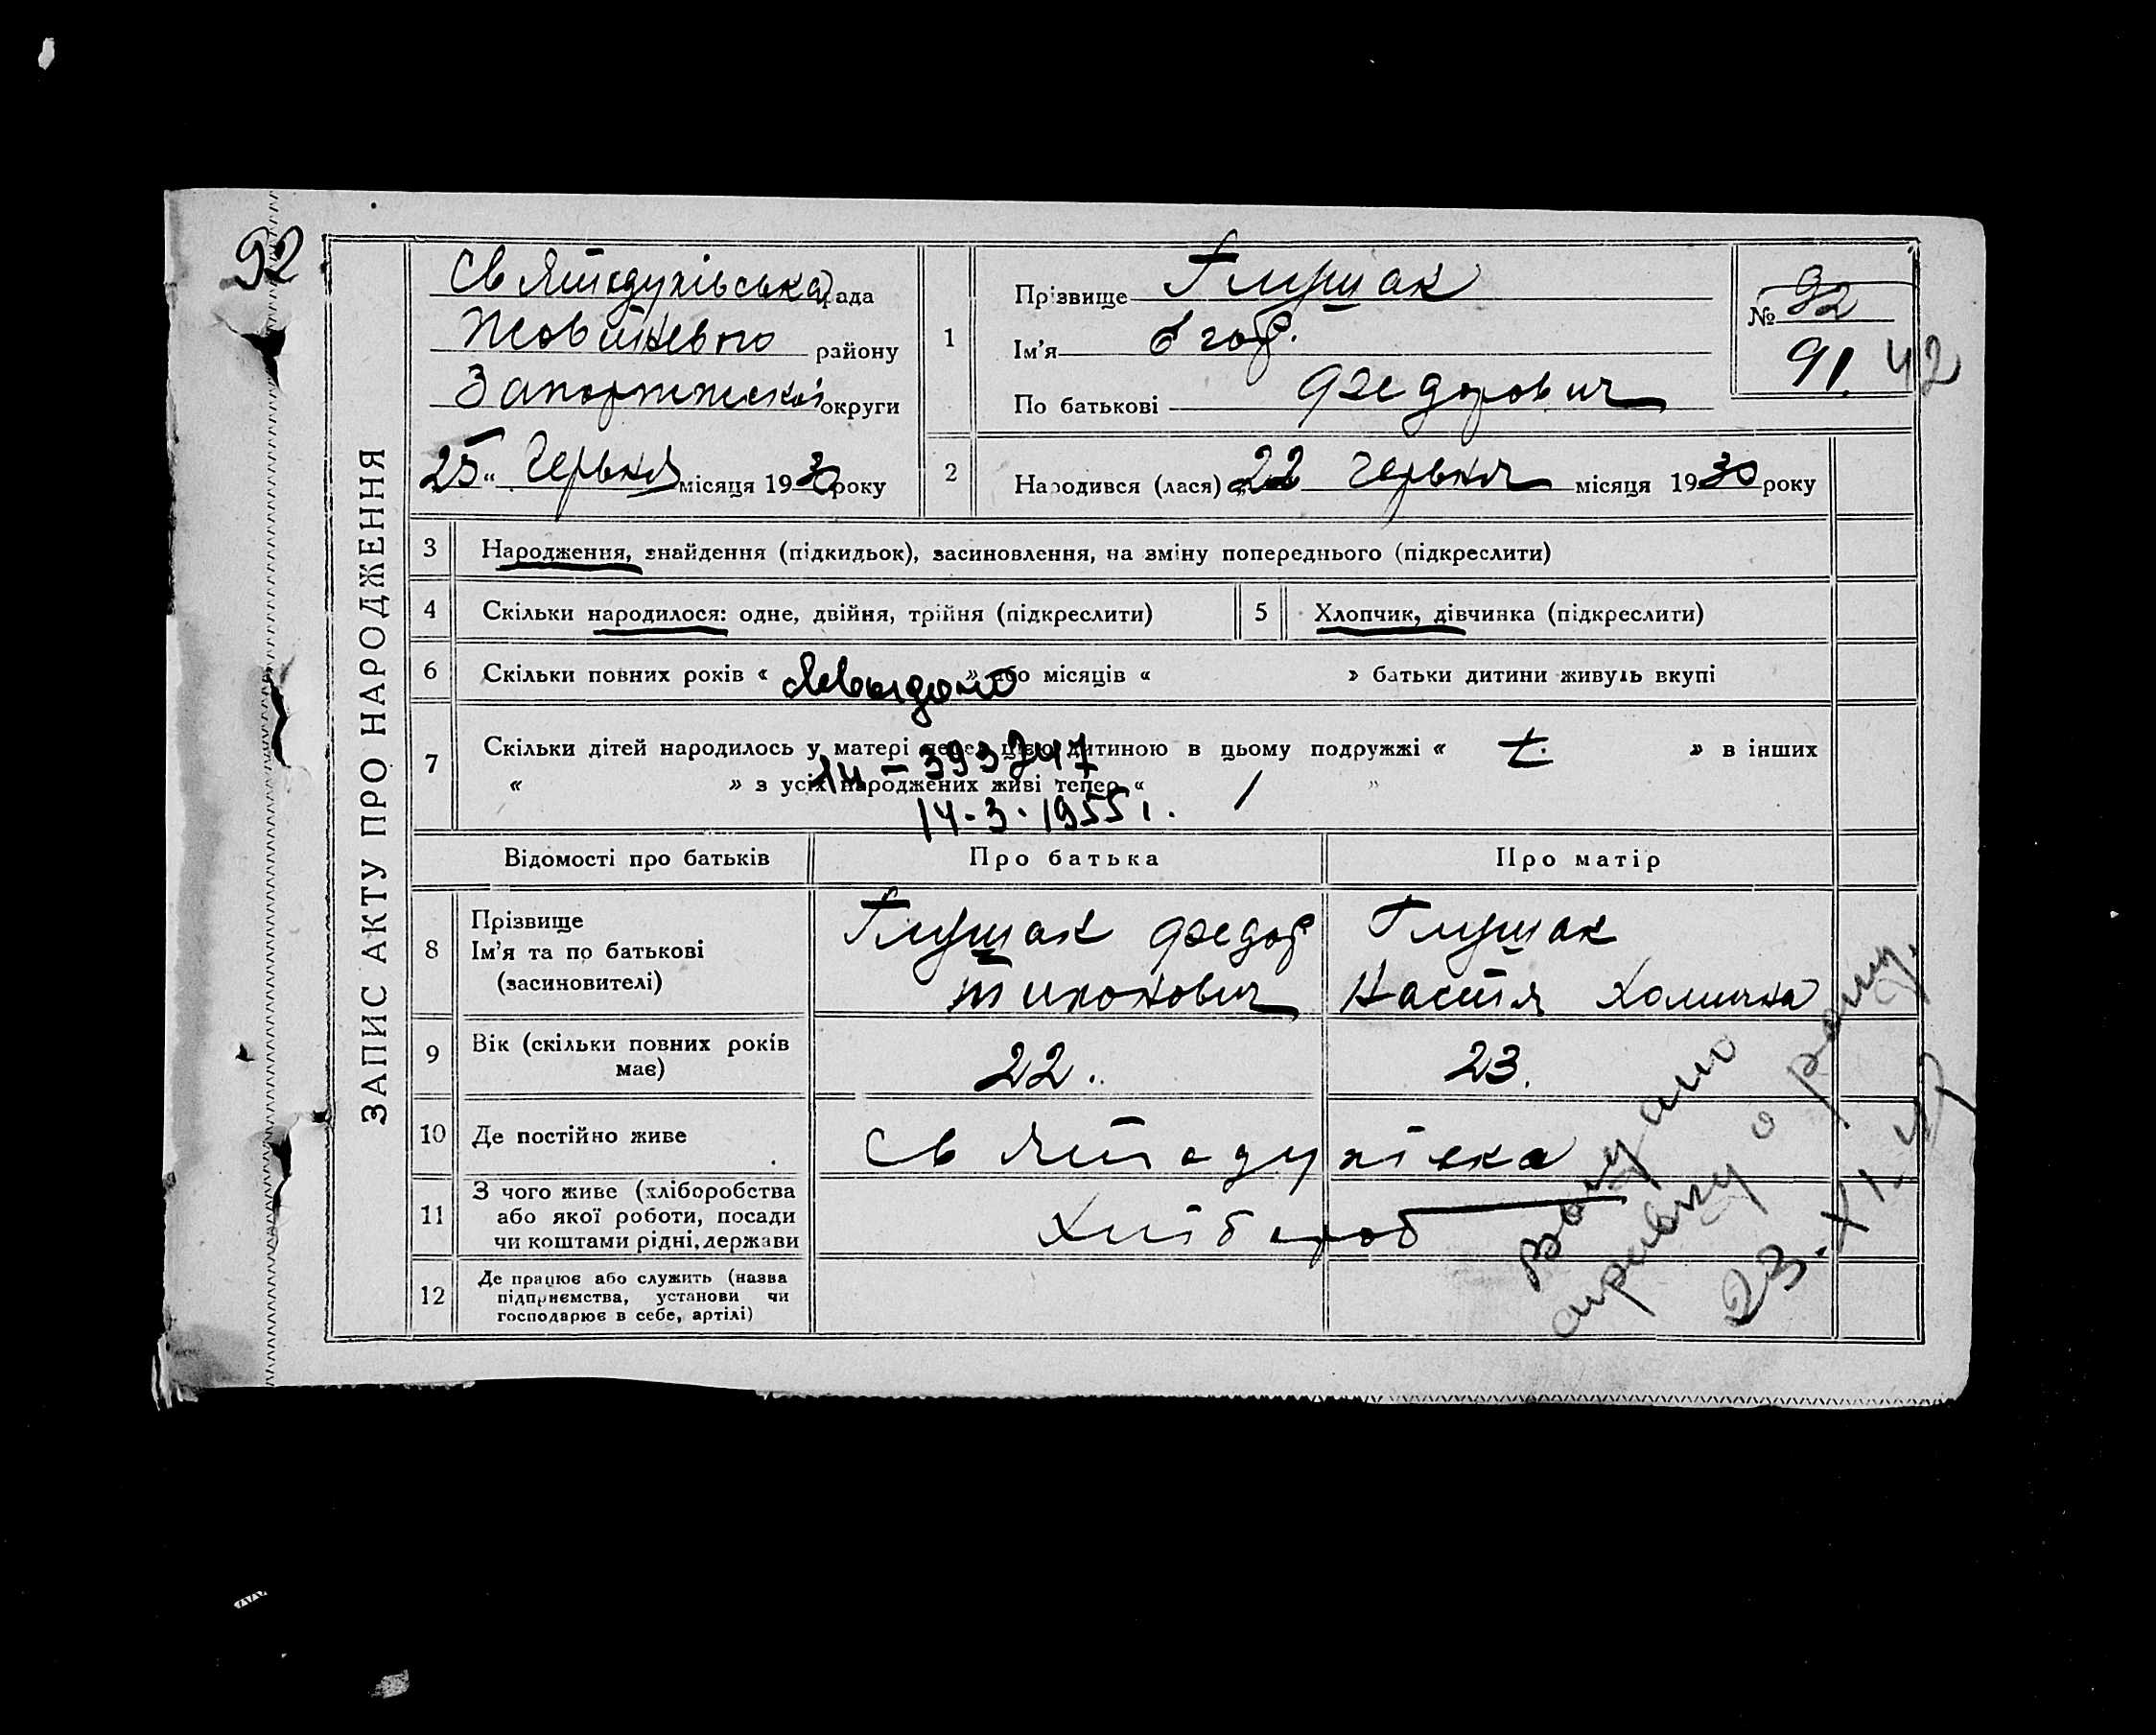 92
ЗАПИС АКТУ ПРО НАРОДЖЕННЯ
Святодухівська рада
Жовтневого району
Запоріжської округи
25 " Червня місяця 1930 року
1
Прізвище Глущак
Ім'я Єгор.
По батькові Федорович
№ 92
91. 42
2
Народився (лася) „ 22 Червня місяця 1930 року
3 Народження, знайдення (підкидьок), засиновлення, на зміну попереднього (підкреслити)
4 Скільки народилося: одне, двійня, трійня (підкреслити)
5 Хлопчик, дівчинка (підкреслити)
6 Скільки повних років « » або місяців « » батьки дитини живуть вкупі
7 Скільки дітей народилось у матері перед цією дитиною в цьому подружжі « » в інших
« » з усіх народжених живі тепер « 1 »
14-3-1955 г.
Відомості про батьків
Про батька
Про матір
8
Прізвище
Ім'я та по батькові
(засиновителі)
Глущак Федор
Тихонович
Глущак
Настя
9 Вік (скільки повних років має)
22.
23.
10 Де постійно живе
Святодухівка
11
З чого живе (хліборобства
або якої роботи, посади
чи коштами рідні, держави
Хлібороб
12
Де працює або служить (назва
підприємства, установи чи
господарює в себе, артілі)
справку о рожд.